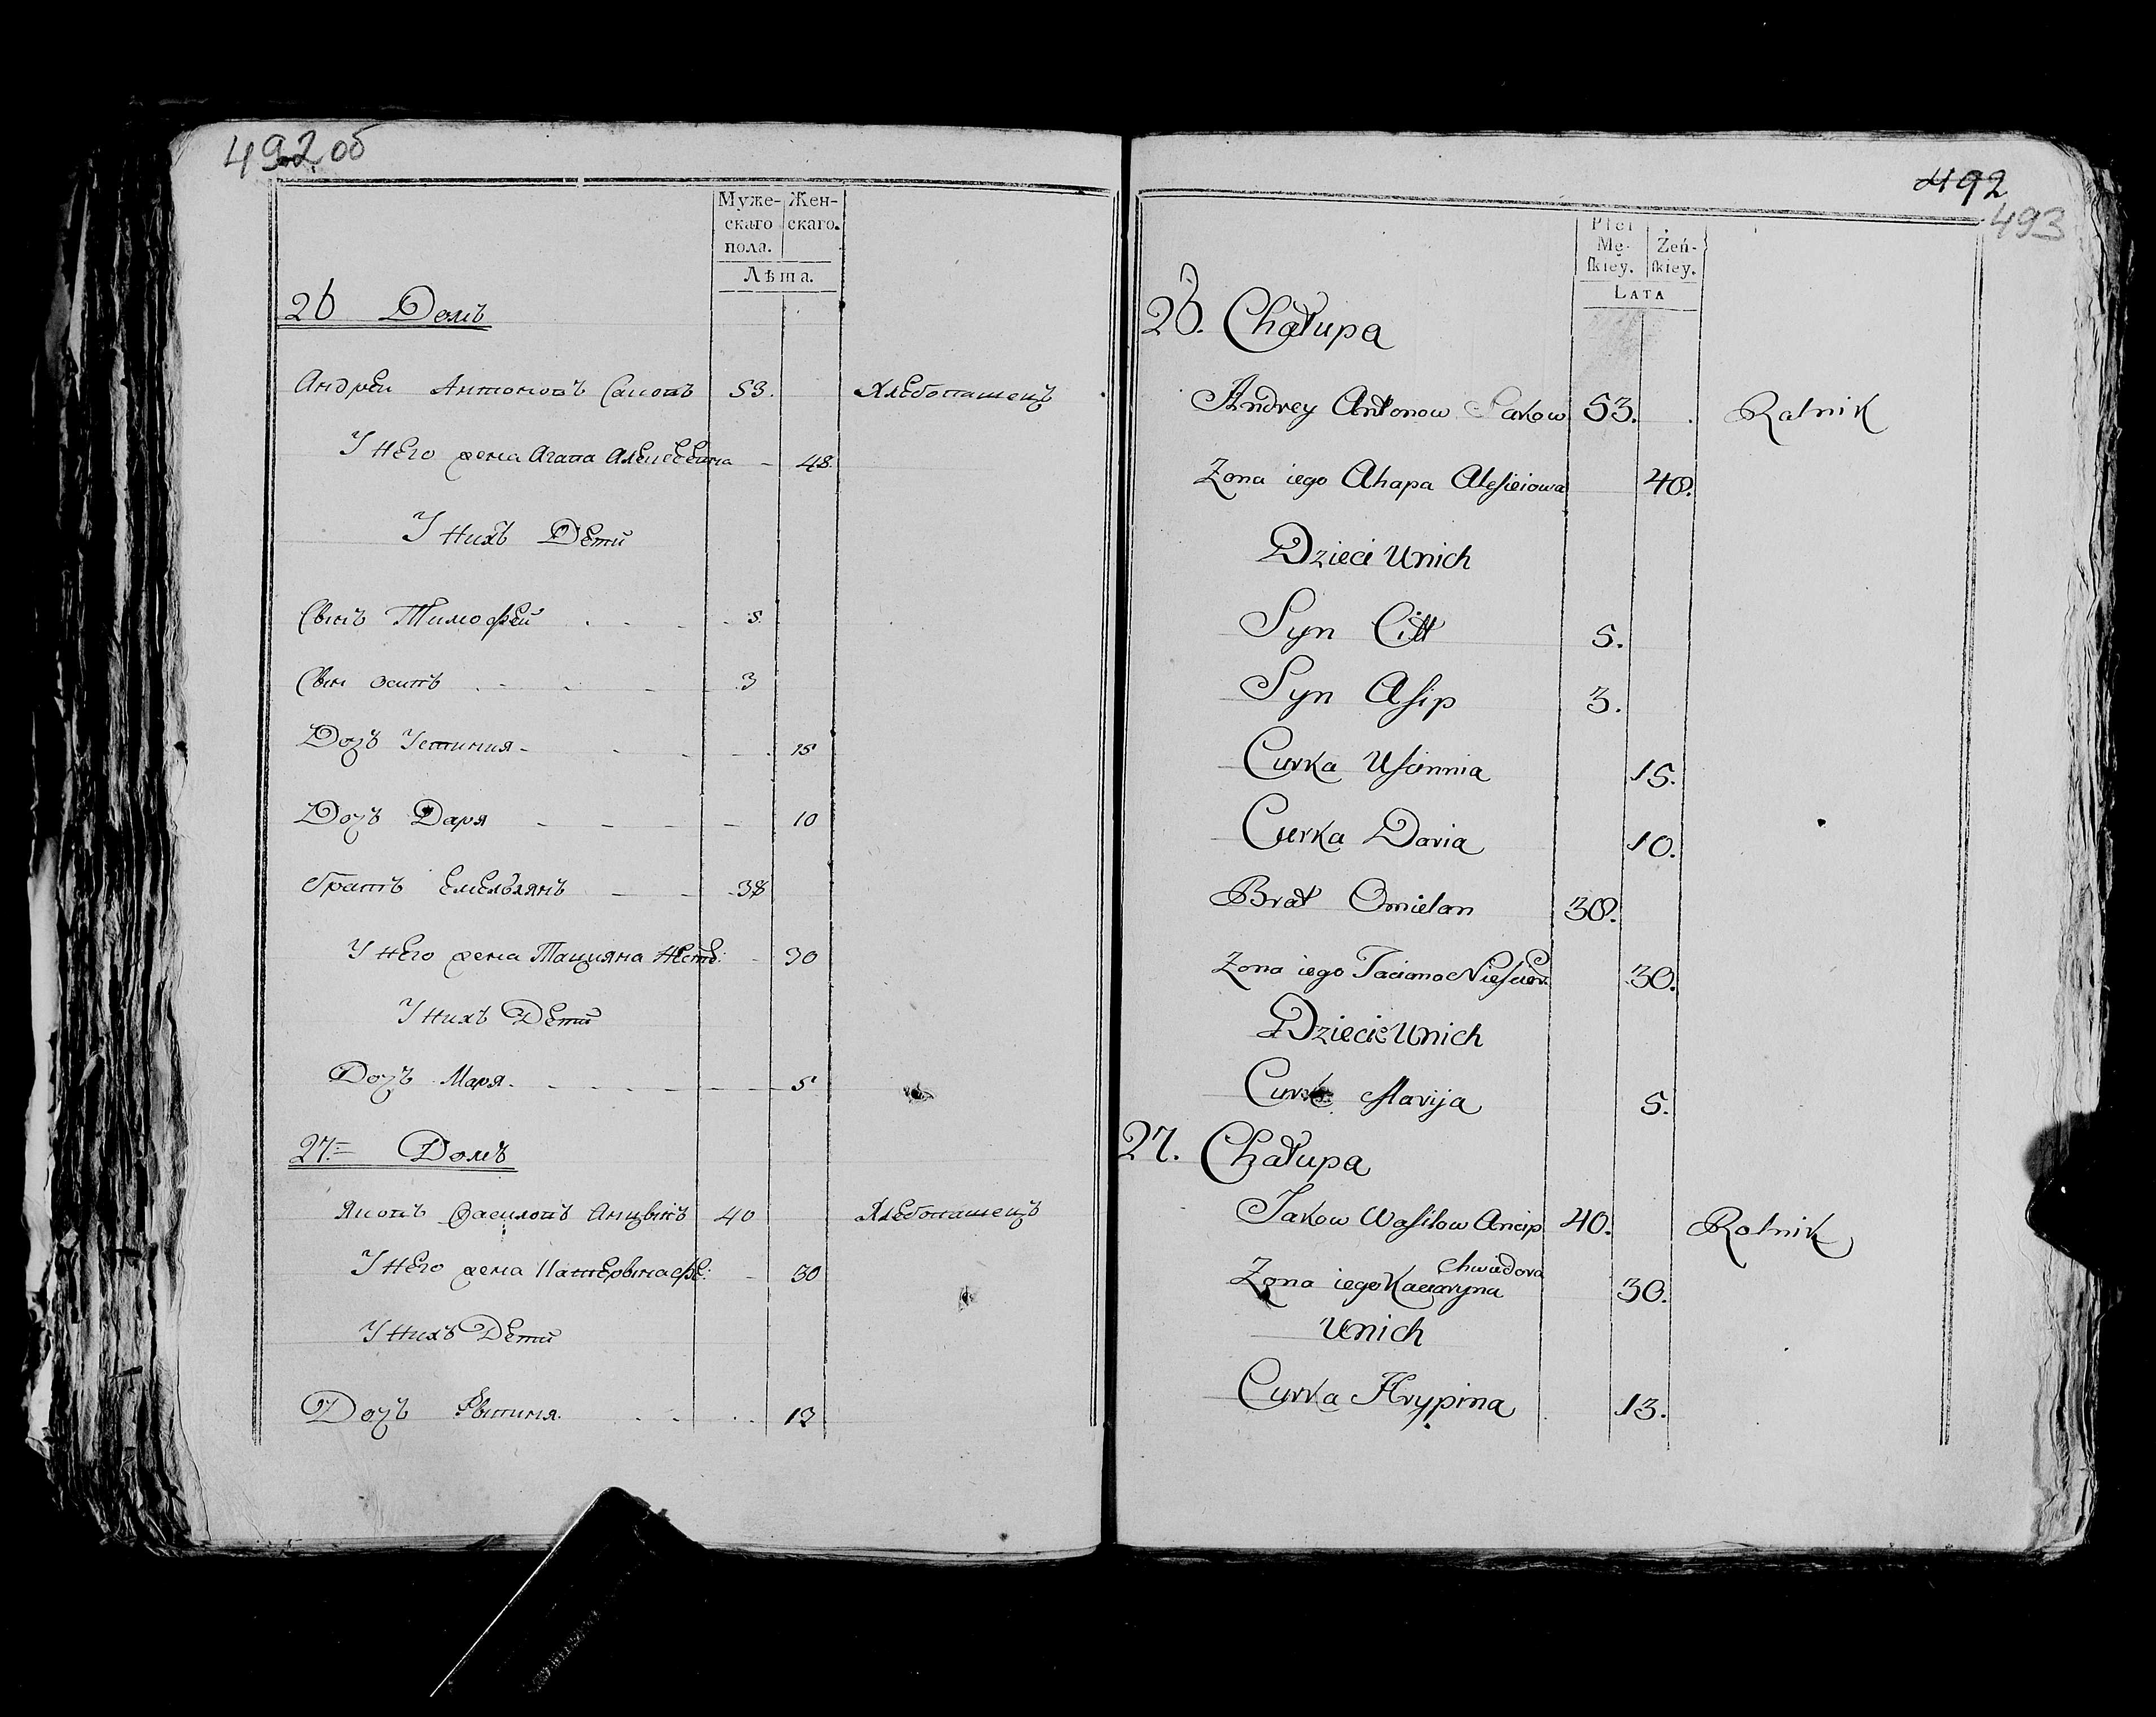 492 об
Муже- Жен-
скаго скаго.
пола.
Лѣта.
26 Домъ
Андреи Антоновъ 53. Хлебопашецъ
У Него жена Агапа 48.
У Нихъ Дети
Сынъ Тимофей 5
Сын Осипъ 3
Дочъ Устиния 15
Дочъ Даря 10
Братъ Емельянъ 38
У Него жена Тацияна Нест: 30
У Нихъ Дети
Дочъ Маря 5
27 Домъ
Яковъ Василовъ 40 Хлебопашецъ
У Него жена Катерына Фе: 30
У Нихъ Дети
Дочъ 13
492
493
Płci
Mę- Żeń-
skiey. skiey.
LATA
26. Chałupa
Andrey Antonow Sakow 53. Rolnik
Zona iego Ahapa Alesieiowa 48.
Dzieci Unich
Syn Citt 5.
Syn Asip 3.
Curka Uscinnia 15.
Curka Daria 10.
Brat Omielan 38.
Zona iego Taciana 30.
Dzieci Unich
Curka Marija 5.
27. Chałupa
Jakow Wasilow Ancip 40. Rolnik
Chwiedora
Zona iego Kaciaryna 30.
Unich
Curka Hrypina 13.